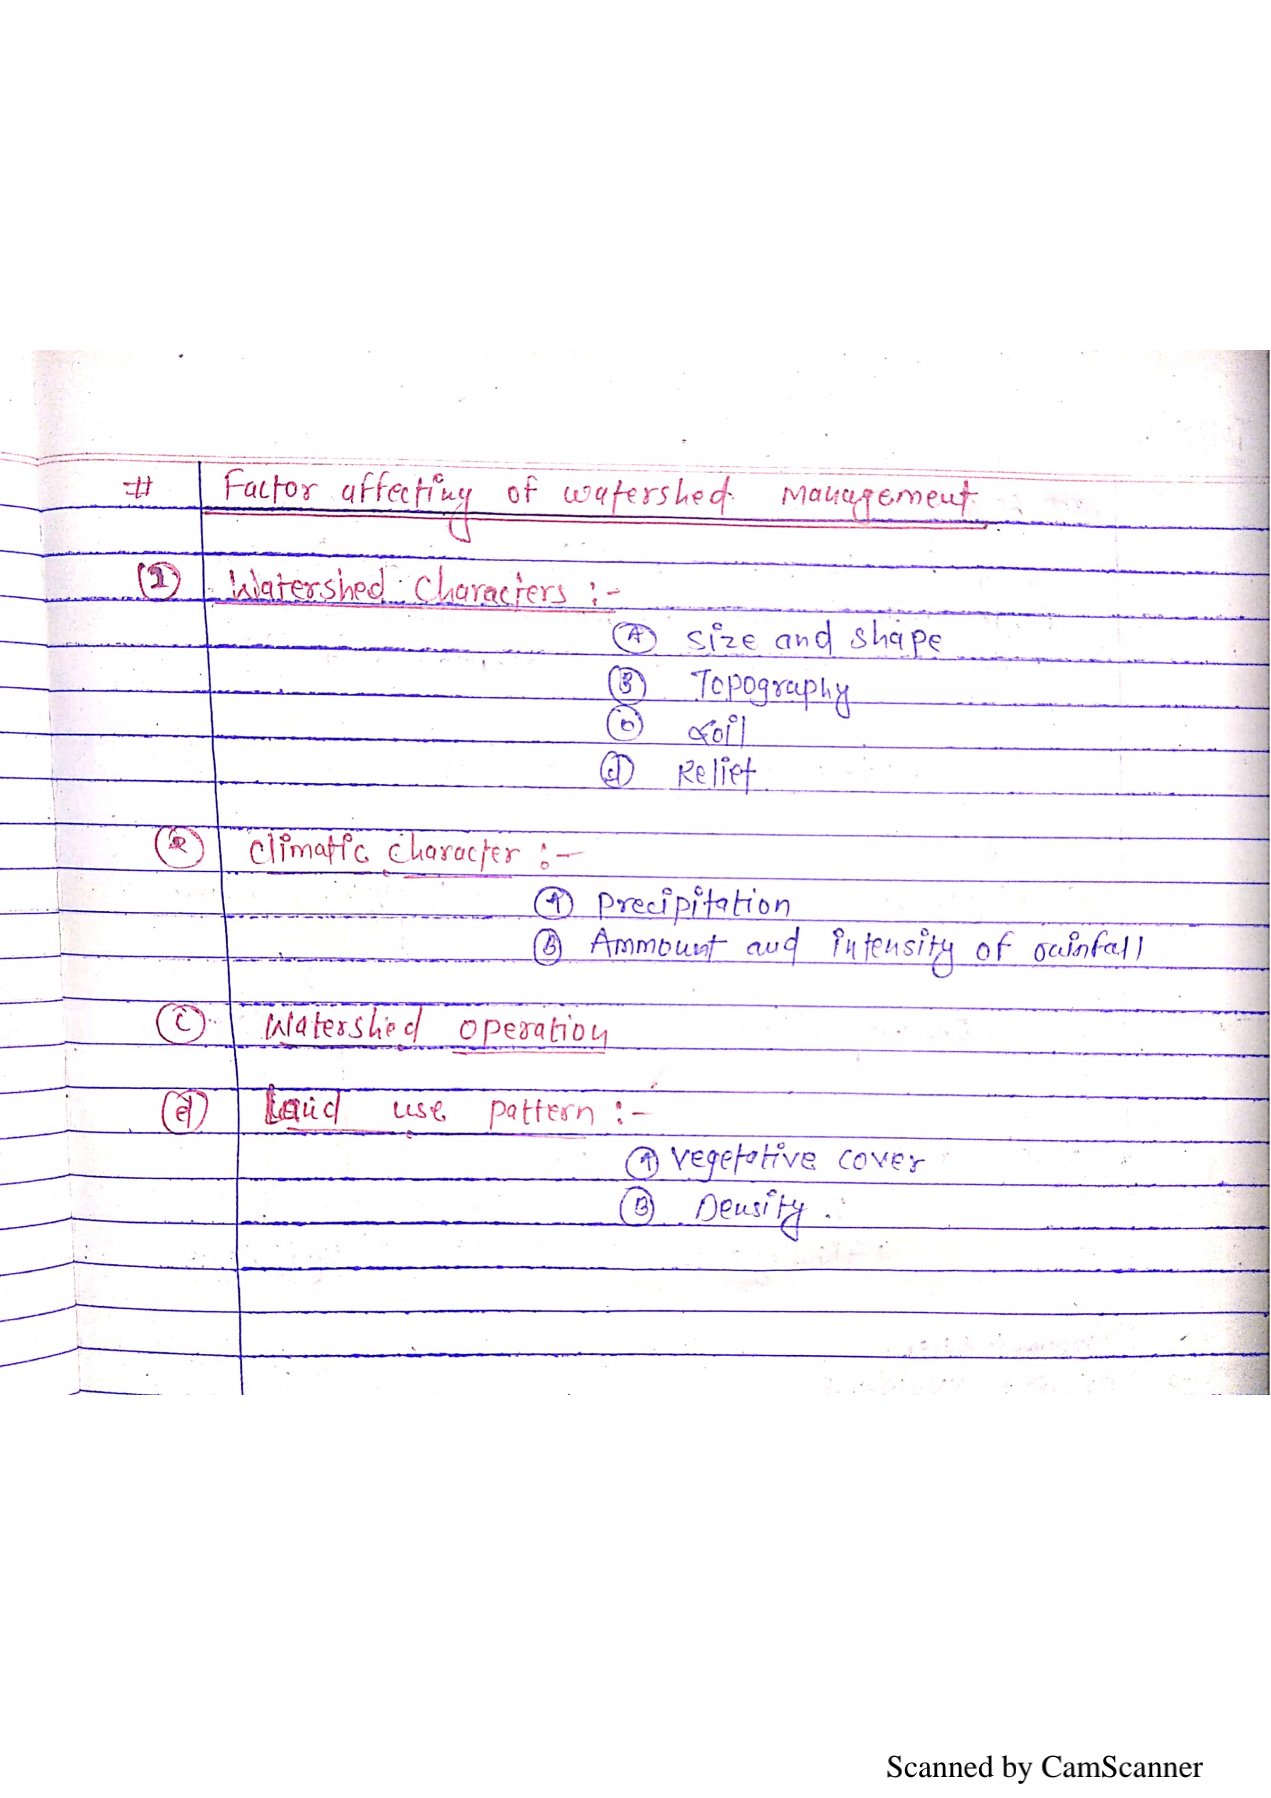 # Factor affecting of watershed Management
① Watershed Characters :-
Ⓐ Size and shape
Ⓑ Topography
Ⓒ Soil
ⓓ Relief
② Climatic character :-
Ⓐ Precipitation
Ⓑ Ammount and intensity of rainfall
Ⓒ Watershed operation
ⓓ Land use pattern :-
Ⓐ Vegetative cover
Ⓑ Density .
Scanned by CamScanner